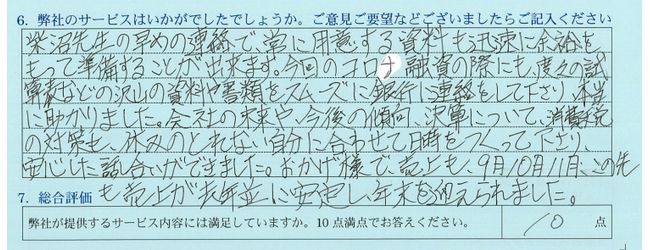 6. 弊社のサービスはいかがでしたでしょうか。ご意見ご要望などございましたらご記入ください
柴沼先生の早めの連絡で、常に用意する資料も迅速に余裕を
もって準備することが出来ます。今回のコロナ融資の際にも、度々の試
算表などの沢山の資料や書類をスムーズに銀行に連絡をして下さり、本当
に助かりました。会社の未来や、今後の傾向、決算について、消費税
の対策を、休みのとれない自分に合わせて日時をつくって下さり、
安心した話合いができました。おかげ様で、売上も、9月10月11月、この先
も売上が去年並に安定し、年末を迎えられました。
7. 総合評価
弊社が提供するサービス内容には満足していますか。10点満点でお答えください。 10 点